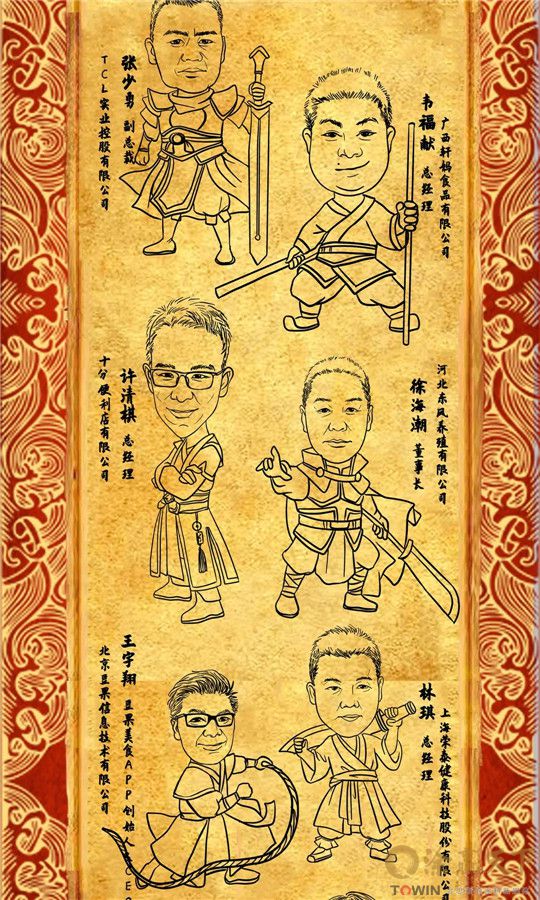 张少勇 副总裁
TCL实业控股有限公司
韦福献 总经理
广西轩妈食品有限公司
许清棋 总经理
十分便利店有限公司
河北东风养殖有限公司
徐海潮 董事长
王宇翔 豆果美食APP创始人
北京豆果信息技术有限公司
林琪 总经理
上海荣泰健康科技股份有限公司
TOWIN